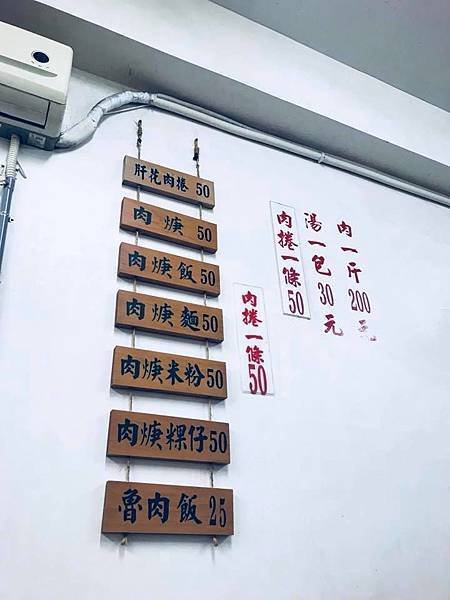 肝花肉捲 50
肉焿 50
肉焿飯 50
肉焿麵 50
肉焿米粉 50
肉焿粿仔 50
魯肉飯 25
肉一斤200元
湯一包30元
肉捲一條50
肉捲一條50